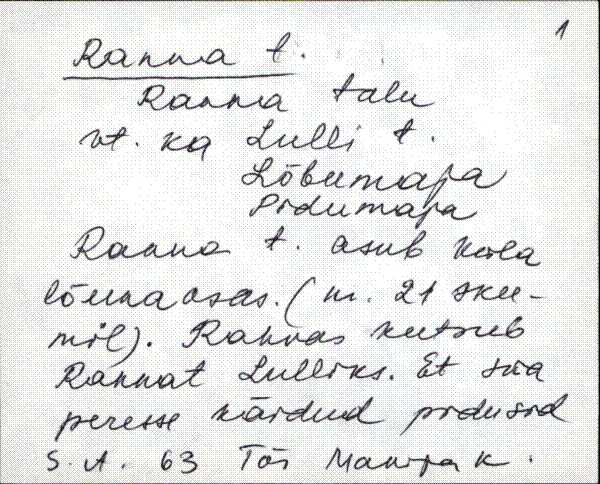 1
Ranna t.
Ranna talu
vt. ka Lulli t.
Lõbumaja
Pidumaja
Ranna t. asub küla
lõunaosas. (nr. 21 skee-
mil). Rahvas kutsub
Rannat Lulliks. Et siia
peresse käidud pidusid
S. A. 63